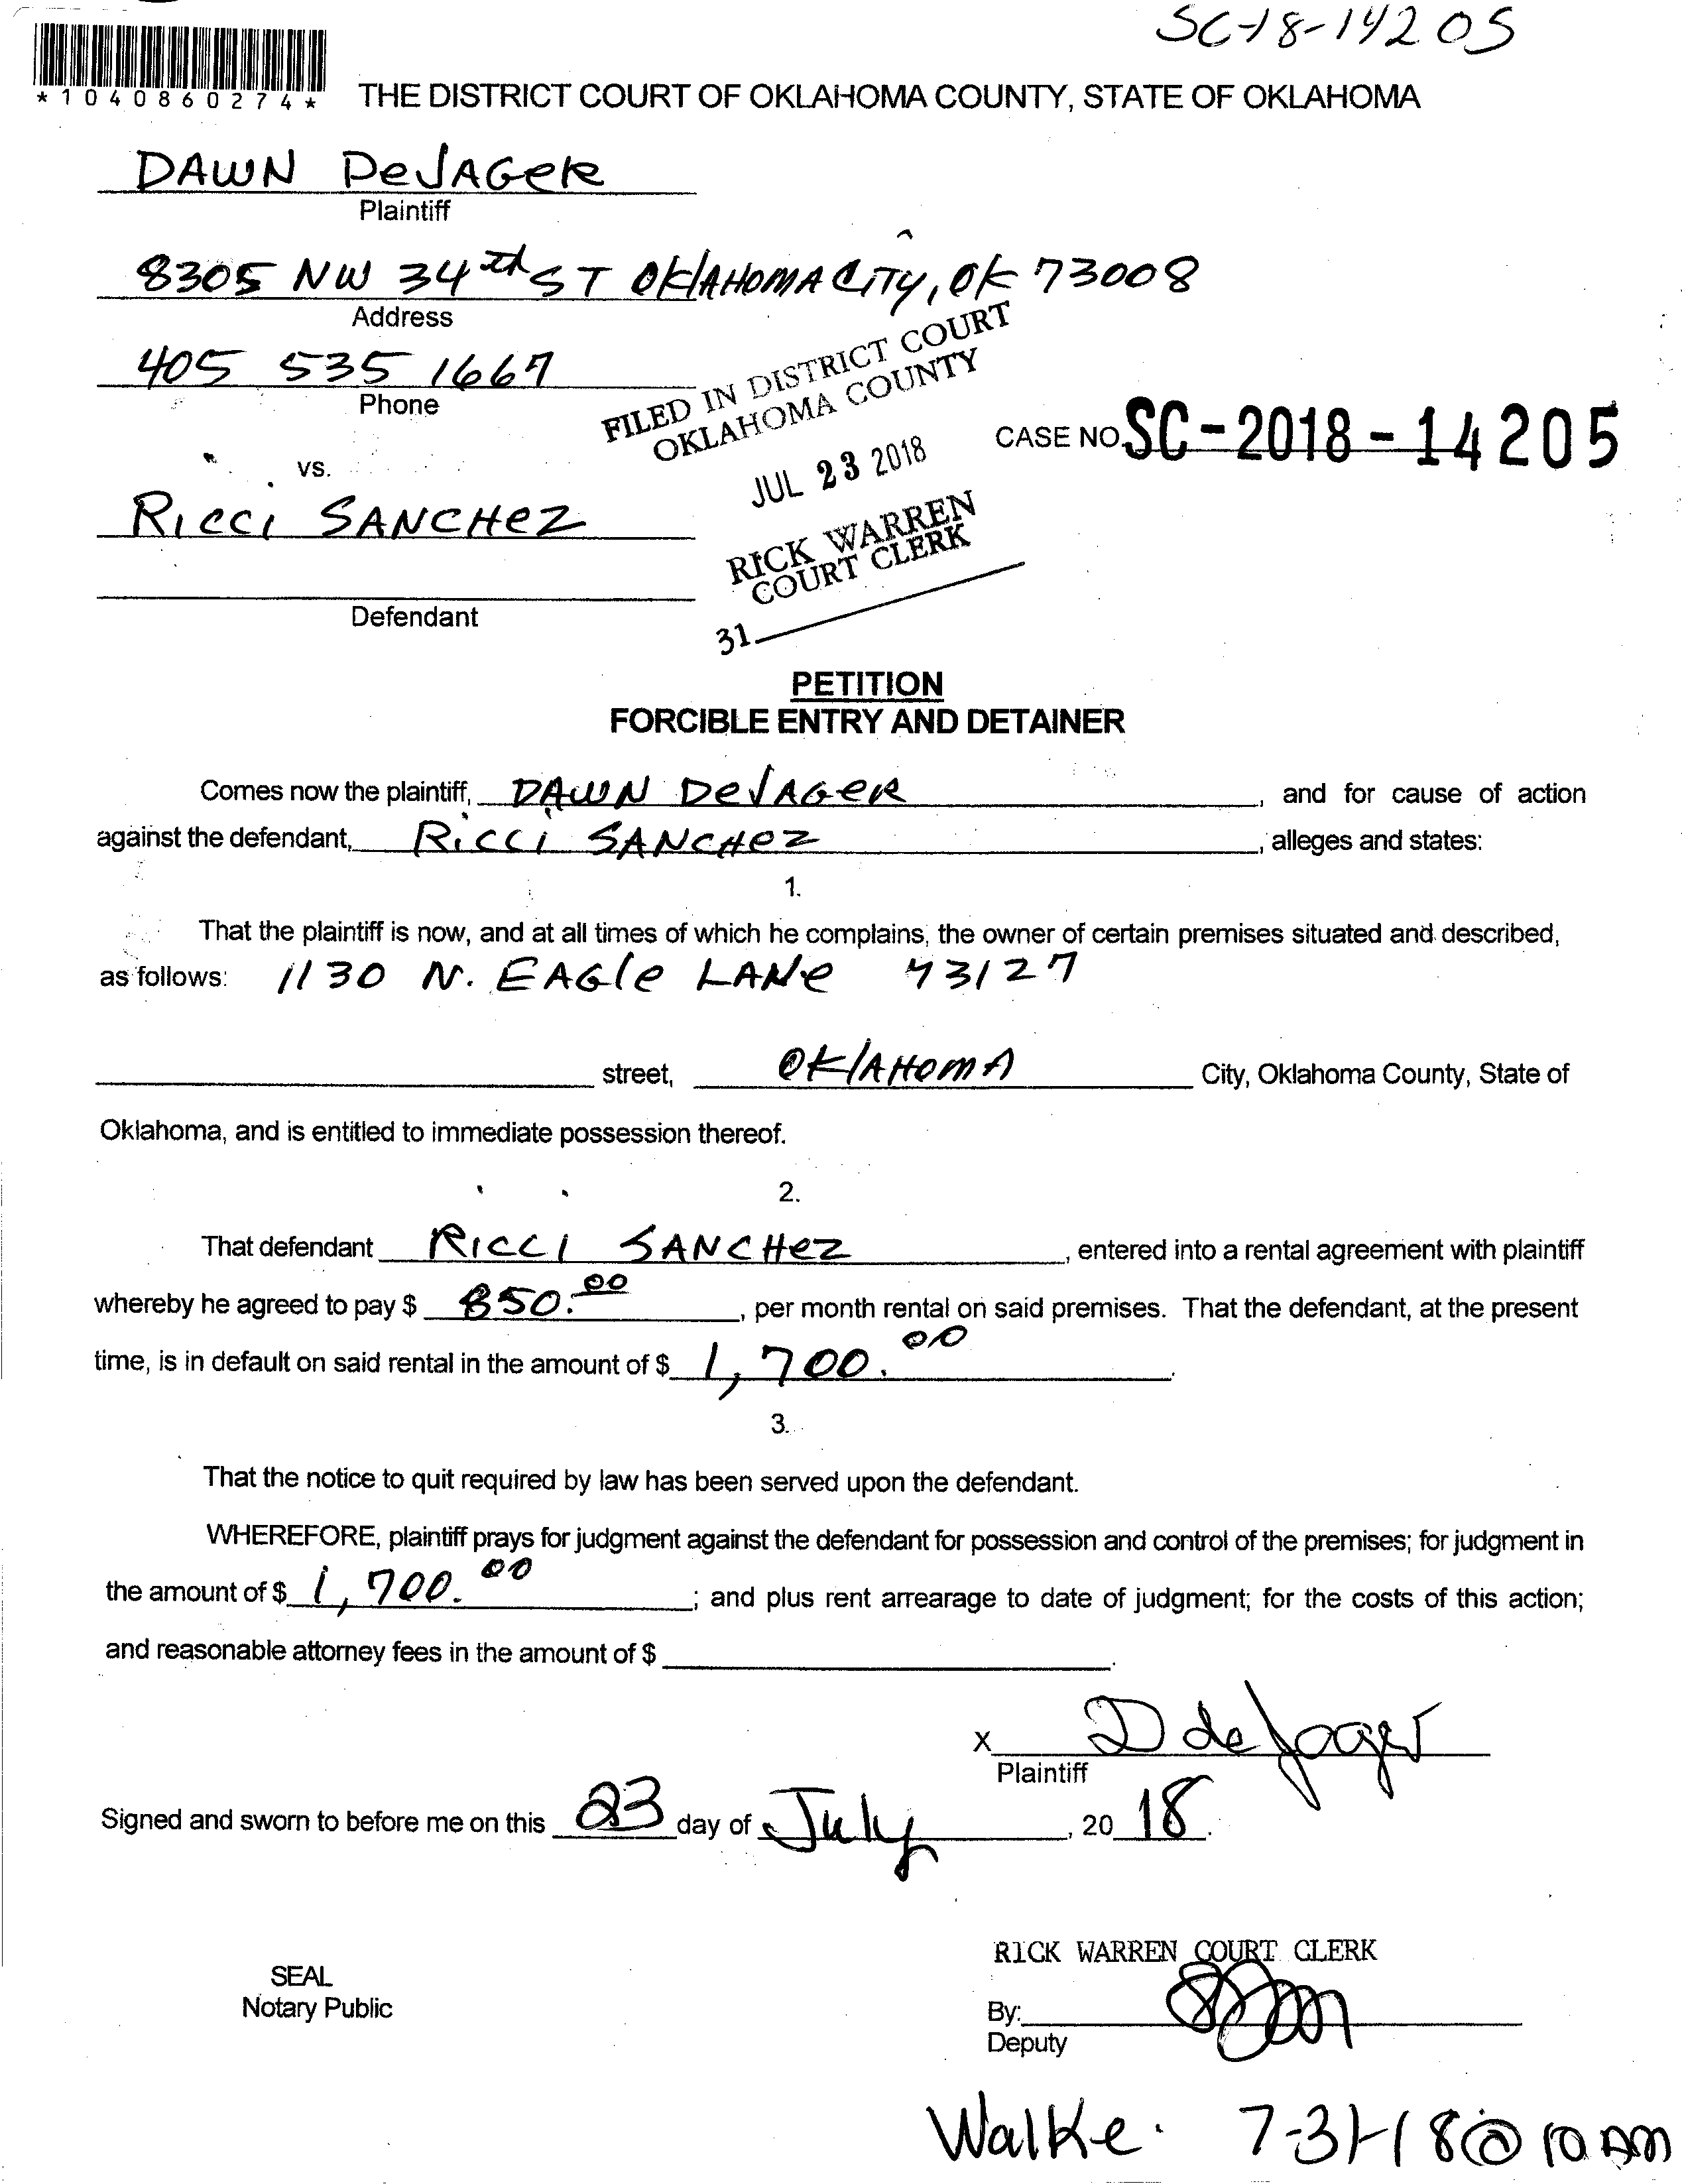 SC-18-14205
*1040860274*
THE DISTRICT COURT OF OKLAHOMA COUNTY, STATE OF OKLAHOMA
DAWN DeJAGeR
Plaintiff
8305 NW 34th ST OklAHOMA CiTy, OK 73008
Address
405 535 1667
Phone
FILED IN DISTRICT COURT
OKLAHOMA COUNTY
JUL 23 2018
RICK WARREN
COURT CLERK
31
CASE NO. SC-2018-14205
vs.
Ricci SANCHeZ
Defendant
PETITION
FORCIBLE ENTRY AND DETAINER
Comes now the plaintiff, DAWN DeJAGeR, and for cause of action
against the defendant, Ricci SANCHeZ, alleges and states:
1.
That the plaintiff is now, and at all times of which he complains, the owner of certain premises situated and described,
as follows: 1130 N. EAGle LANe 73127
street, OklAHOMA City, Oklahoma County, State of
Oklahoma, and is entitled to immediate possession thereof.
2.
That defendant Ricci SANCHeZ, entered into a rental agreement with plaintiff
whereby he agreed to pay $ 850.00, per month rental on said premises. That the defendant, at the present
time, is in default on said rental in the amount of $ 1,700.00.
3.
That the notice to quit required by law has been served upon the defendant.
WHEREFORE, plaintiff prays for judgment against the defendant for possession and control of the premises; for judgment in
the amount of $ 1,700.00; and plus rent arrearage to date of judgment; for the costs of this action;
and reasonable attorney fees in the amount of $.
X D deJager
Plaintiff
Signed and sworn to before me on this 23 day of July, 20 18.
RICK WARREN COURT CLERK
SEAL
Notary Public
By:
Deputy
Walke. 7-31-18 @ 10 AM